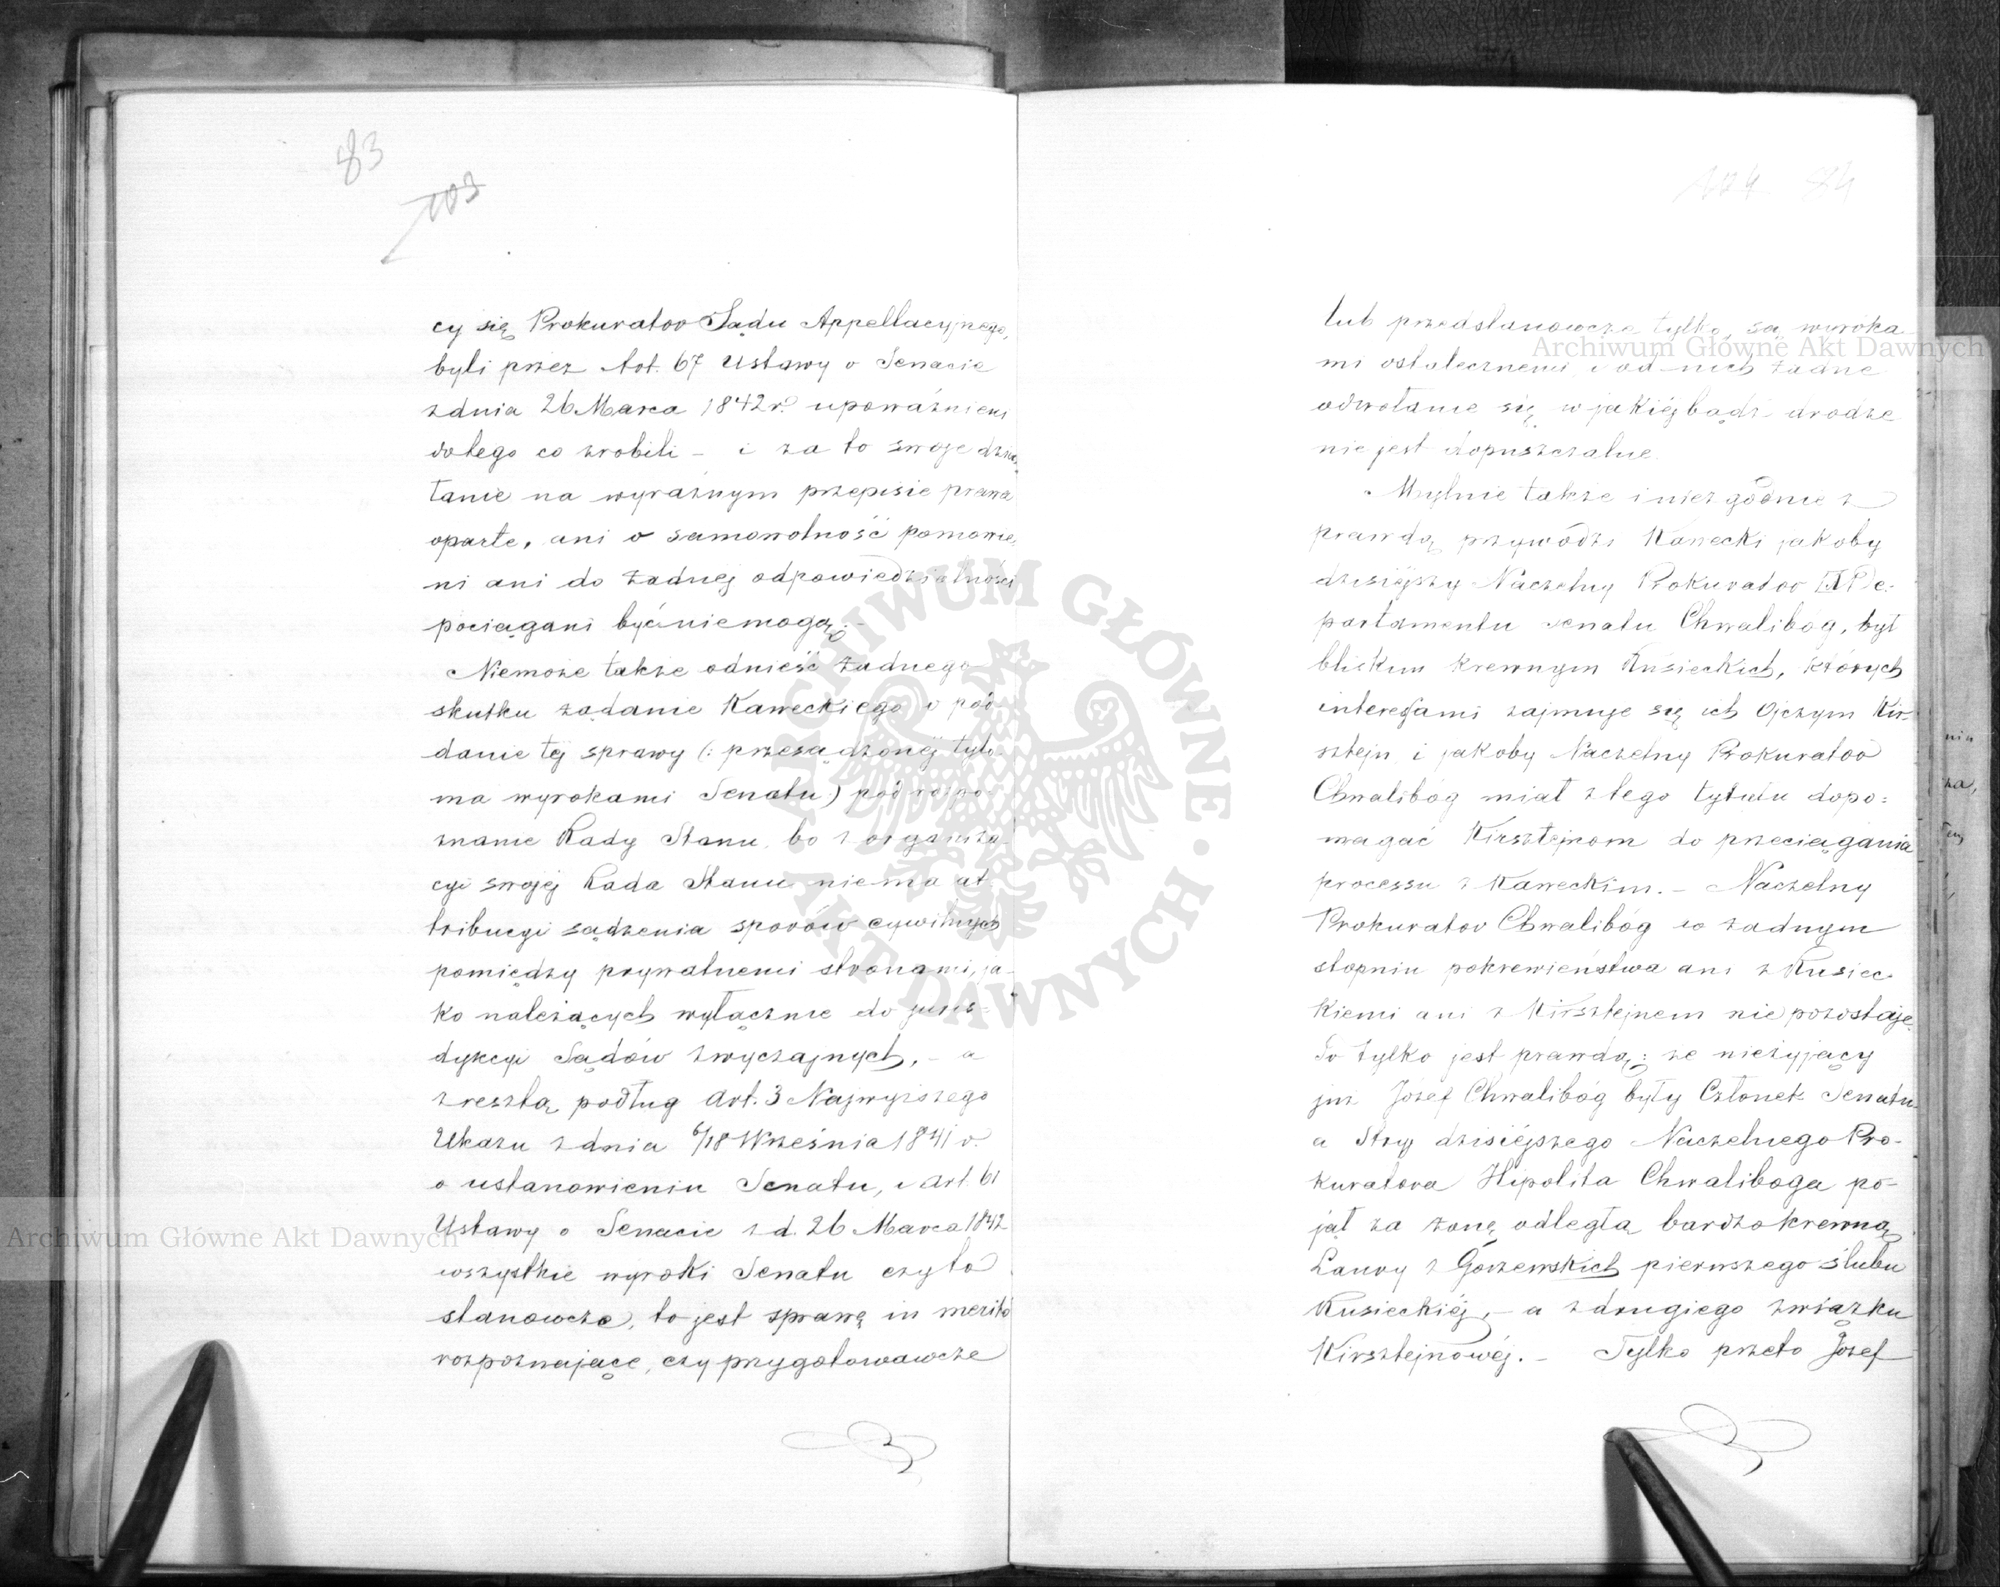 83
103
cy się Prokurator Sądu Appellacyjnego,
byli przez Art. 67 Ustawy o Senacie
z dnia 26 Marca 1842 r. upoważnieni
do tego co zrobili – i za to swoje dzia
łanie na wyraźnym przepisie prawa
oparte, ani o samowolność pomawie
ni ani do żadnej odpowiedzialności
pociągani być niemogą. –
Niemoże także odnieść żadnego
skutku żądanie Kaweckiego o pod
danie téj sprawy (: przesądzonéj tylo
ma wyrokami Senatu :) pod rozpo
znanie Rady Stanu, bo z organiza
cyi swojéj Rada Stanu niema at
tribucyi sądzenia sporów cywilnych
pomiędzy prywatnemi stronami, ja
ko należących wyłącznie do jurys-
dykcyi Sądów zwyczajnych, – a
zresztą podług Art. 3 Najwyższego
Ukazu z dnia 6/18 Września 1841 r.
o ustanowieniu Senatu, i Art. 61
Ustawy o Senacie z d. 26 Marca 1842
wszystkie wyroki Senatu czyto
stanowcze, to jest sprawę in merito
rozpoznające, czy przygotowawcze
104 84
lub przedstanowcze tylko, są wyroka
mi ostatecznemi i od nich żadne
odwołanie się w jakiéjbądź drodze
nie jest dopuszczalne.
Mylnie także i niezgodnie z
prawdą przywodzi Kawecki jakoby
dzisiéjszy Naczelny Prokurator IX De-
partamentu Senatu Chwalibóg, był
bliskim krewnym Kusieckich, których
interesami zajmuje się ich Ojczym Kir-
sztejn i jakoby Naczelny Prokurator
Chwalibóg miał z tego tytułu dopo-
magać Kirsztejnom do przeciągania
processu z Kaweckim. – Naczelny
Prokurator Chwalibóg w żadnym
stopniu pokrewieństwa ani z Kusiec-
kiemi ani z Kirsztejnem nie pozostaje
To tylko jest prawdą: że nieżyjący
już Józef Chwalibóg były Członek Senatu
a Stryj dzisiéjszego Naczelnego Pro-
kuratora Hipolita Chwaliboga po-
jął za żonę odległą bardzo krewną
Laury z Górzewskich pierwszego ślubu
Kusieckiéj, – a z drugiego związku
Kirsztejnowéj. – Tylko przeto Józef
Archiwum Główne Akt Dawnych
Archiwum Główne Akt Dawnych
ARCHIWUM GŁÓWNE · AKT DAWNYCH ·